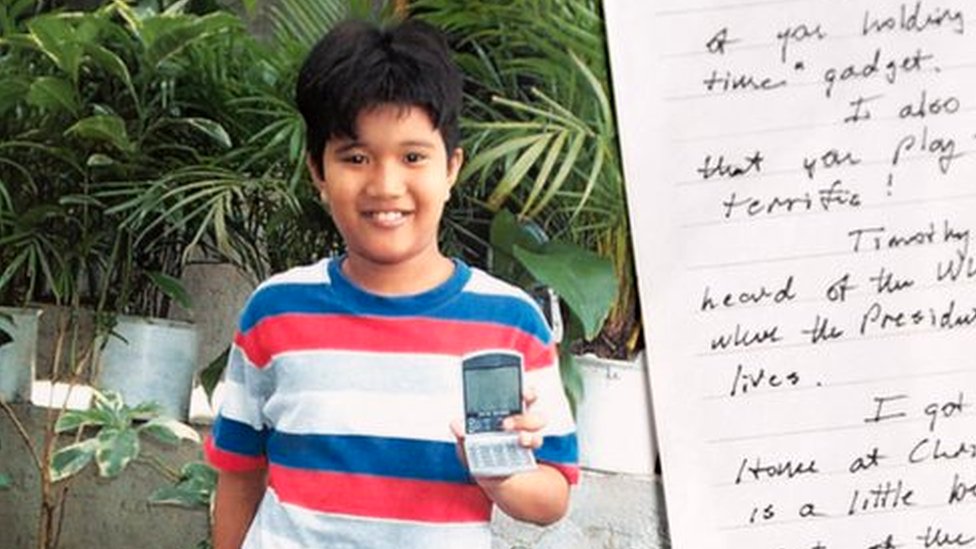 of you holding
time" gadget.
I also
that you play
terrific!
Timothy
heard of the Wh
where the President
lives.
I got
Home at Chris
is a little be
of the